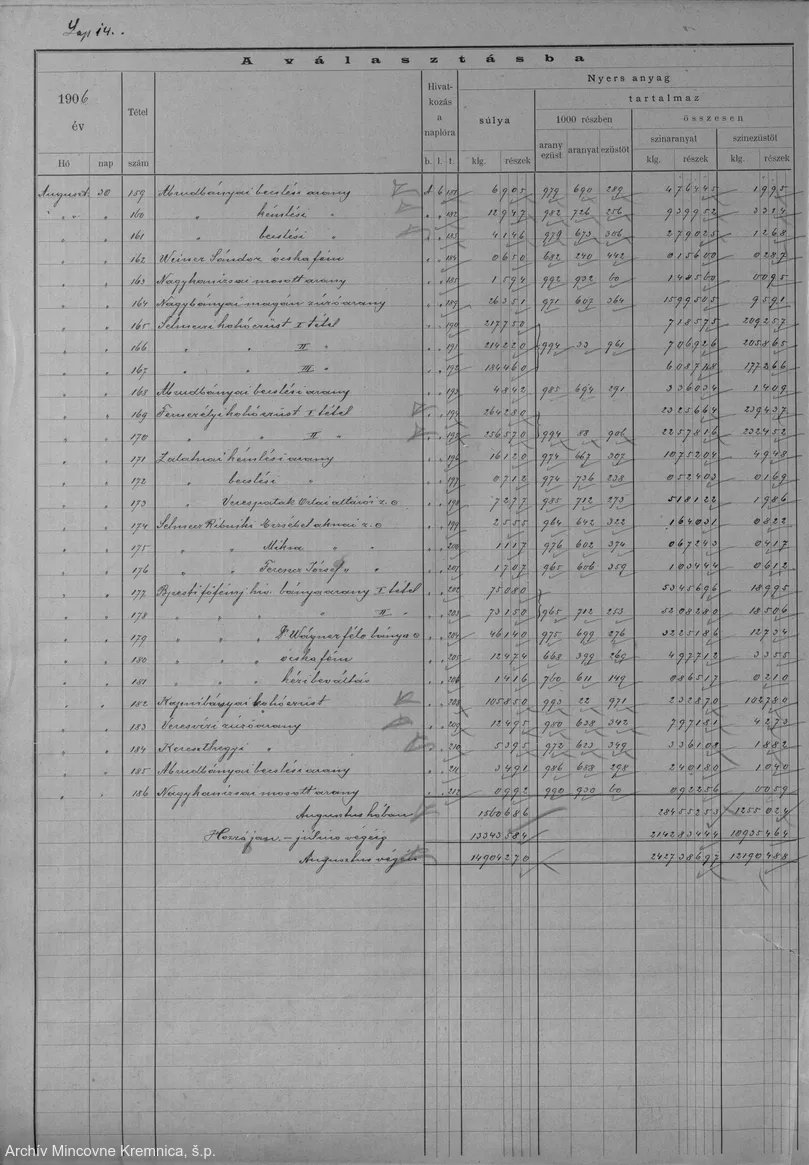 Lap 14.
A választásba
1906 év
Tétel szám
Hivatkozás a naplóra
Nyers anyag
tartalmaz
súlya
1000 részben
összesen
arany ezüst aranyat ezüstöt
szinaranyat szinezüstöt
Hó nap b. l. t. klg. részek klg. részek klg. részek
August. 30 159 Abrudbányai beváltási arany 6905 979 690 289 476445 1995
" " 160 " " 12947 982 726 256 939952 3324
" " 161 " " 4146 979 673 306 279025 1268
" " 162 Weiner Sándor ócska fém 184 0650 682 240 442 015600 0287
" " 163 Nagykanizsai mosott arany 1594 992 932 60 0095
" " 164 Nagybányai magán zúzóarany 189 26351 971 607 364 1599505 9591
" " 165 Selmeci kohóezüst I tétel 190 217750 718575 209257
" " 166 " " II " 191 214220 994 33 961 706926 205865
" " 167 " " III " 192 184460 608718 177266
" " 168 Abrudbányai 193 4842 985 694 291 336034 1409
" " 169 kohóezüst I tétel 194 264280 2325664 239437
" " 170 " " II " 195 256570 994 88 906 2257816 232452
" " 171 Zalatnai arany 196 16120 974 667 307 1075204 4948
" " 172 " " 197 0712 974 736 238 052403 0169
" " 173 " Verespatak Orlai altárói z. a 198 7277 985 712 273 518122 1986
" " 174 Selmec Ribniki Erzsébet aknai z. a 199 2555 964 642 322 164031 0822
" " 175 " " 200 1117 976 602 374 067243 0417
" " 176 " " Ferencz József " " 201 1707 965 606 359 103444 0612
" " 177 Bpesti főfémj. hiv. bányaarany I tétel 202 75080 5345696 18995
" " 178 " " " II " 203 73150 965 712 253 5208280 18506
" " 179 " " Dr Wágner féle bánya a 204 46140 975 699 276 3225186 12734
" " 180 " " ócska fém 205 12474 668 399 269 497712 3355
" " 181 " " kézi beváltás 206 1416 760 611 149 086517 0210
" " 182 kohóezüst 208 105850 993 22 971 232870 102780
" " 183 Veresvizi zúzóarany 209 12495 980 638 342 797181 4273
" " 184 Kereszthegyi " 210 5395 972 623 349 336108 1882
" " 185 Abrudbányai arany 211 3491 986 688 298 240180 1040
" " 186 Nagykanizsai mosott arany 212 0992 990 930 60 092256 0059
Augusztus hóban 1560686 28455253 1255024
Hozzá jan. – július végéig 13343584 214283444 10935464
Augusztus végéig 14904270 242738697 12190488
Archív Mincovne Kremnica, š.p.